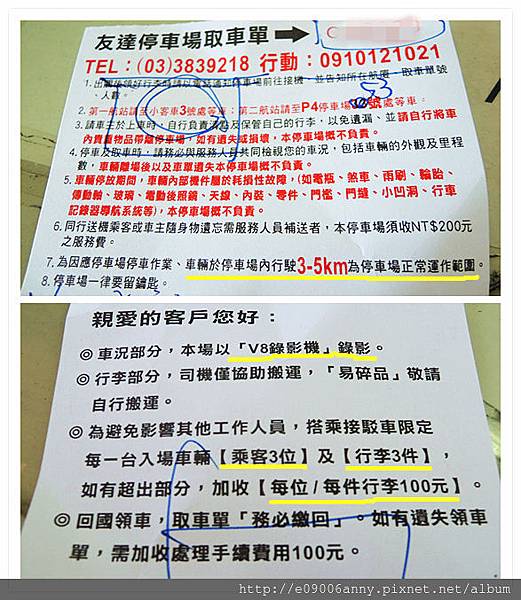 友達停車場取車單
TEL：(03)3839218 行動：0910121021
1. 出關後領好行李時請以電話通知停車場前往接機，並告知所在航廈、取車單號
、人數。
2. 第一航站請至小客車3號處等車；第二航站請至P4停車場 號處等車。
33
3. 請車主於上車時，自行負責清點及保管自己的行李，以免遺漏、並請自行將車
內貴重物品帶離停車場，如有遺失或損壞，本停車場概不負責。
4. 停車及取車時，請務必與服務人員共同檢視您的車況，包括車輛的外觀及里程
數，車輛離場後以及車單遺失本停車場概不負責。
5. 車輛停放期間，車輛內部機件屬於耗損性故障，(如電瓶、煞車、雨刷、輪胎、
傳動軸、玻璃、電動後照鏡、天線、內裝、零件、門檻、門縫、小凹洞、行車
記錄器導航系統等)，本停車場概不負責。
6. 同行送機乘客或車主隨身物遺忘需服務人員補送者，本停車場須收NT$200元
之服務費。
7. 為因應停車場停車作業、車輛於停車場內行駛3-5km為停車場正常運作範圍。
8. 停車場一律要留鑰匙。
親愛的客戶您好：
◎ 車況部分，本場以「V8錄影機」錄影。
◎ 行李部分，司機僅協助搬運，「易碎品」敬請
自行搬運。
◎ 為避免影響其他工作人員，搭乘接駁車限定
每一台入場車輛【乘客3位】及【行李3件】，
如有超出部分，加收【每位 / 每件行李100元】。
◎ 回國領車，取車單「務必繳回」。如有遺失領車
單，需加收處理手續費用100元。
http://e09006anny.pixnet.net/album